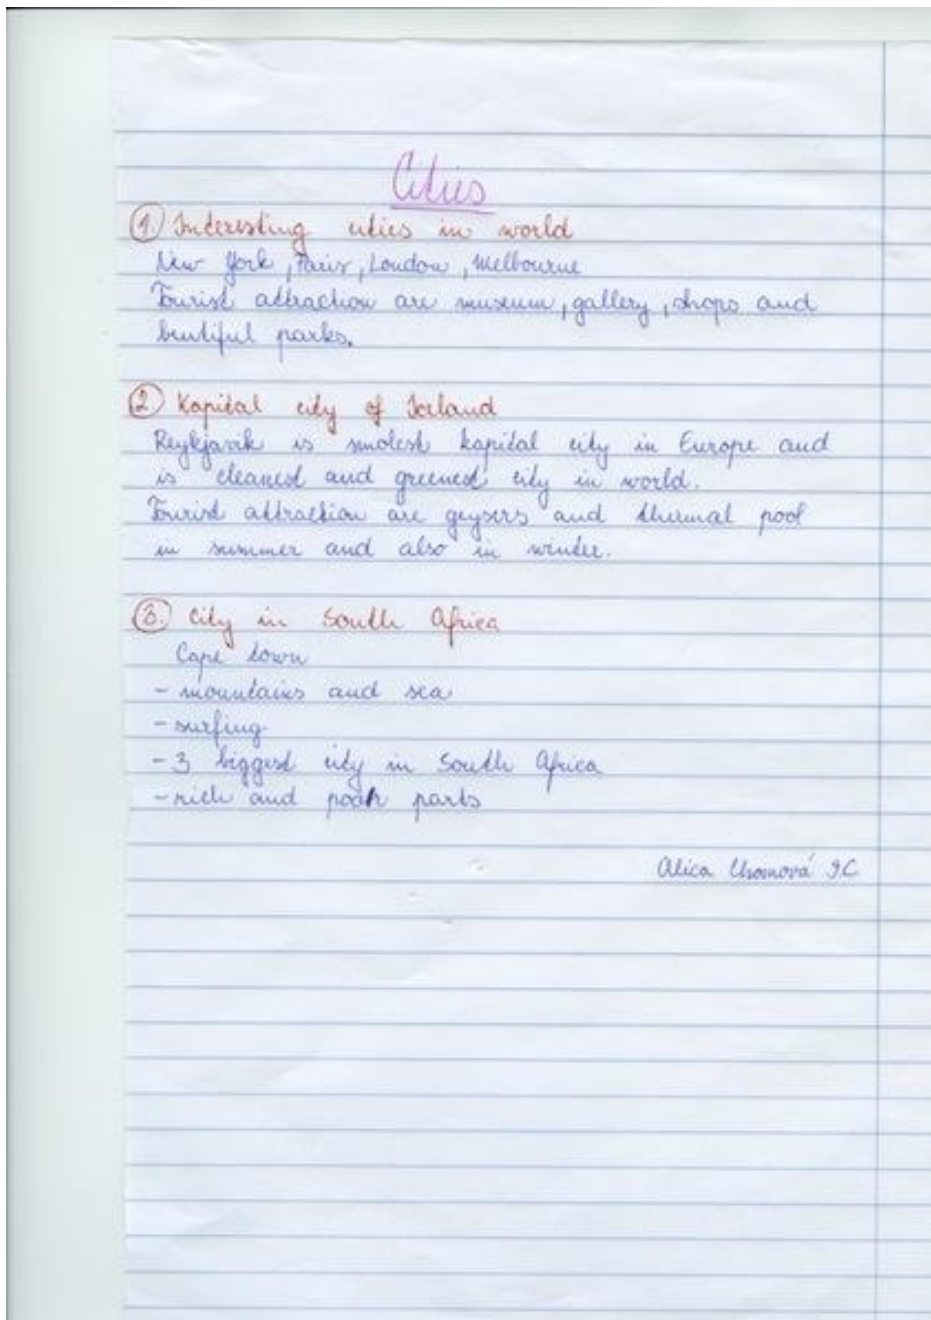 Cities
1. Interesting cities in world
New York, Paris, London, Melbourne
Tourist attraction are museum, gallery, shops and
beutiful parks.
2 Kapital city of Iceland
Reykjavik is smolest kapital city in Europe and
is cleanest and greenest city in world.
Tourist attraction are geysers and thermal pool
in summer and also in winter.
3. City in South Africa
Cape town
- mountains and sea
- surfing
- 3 biggest city in South Africa
- rich and poor parts
Alica 9.C